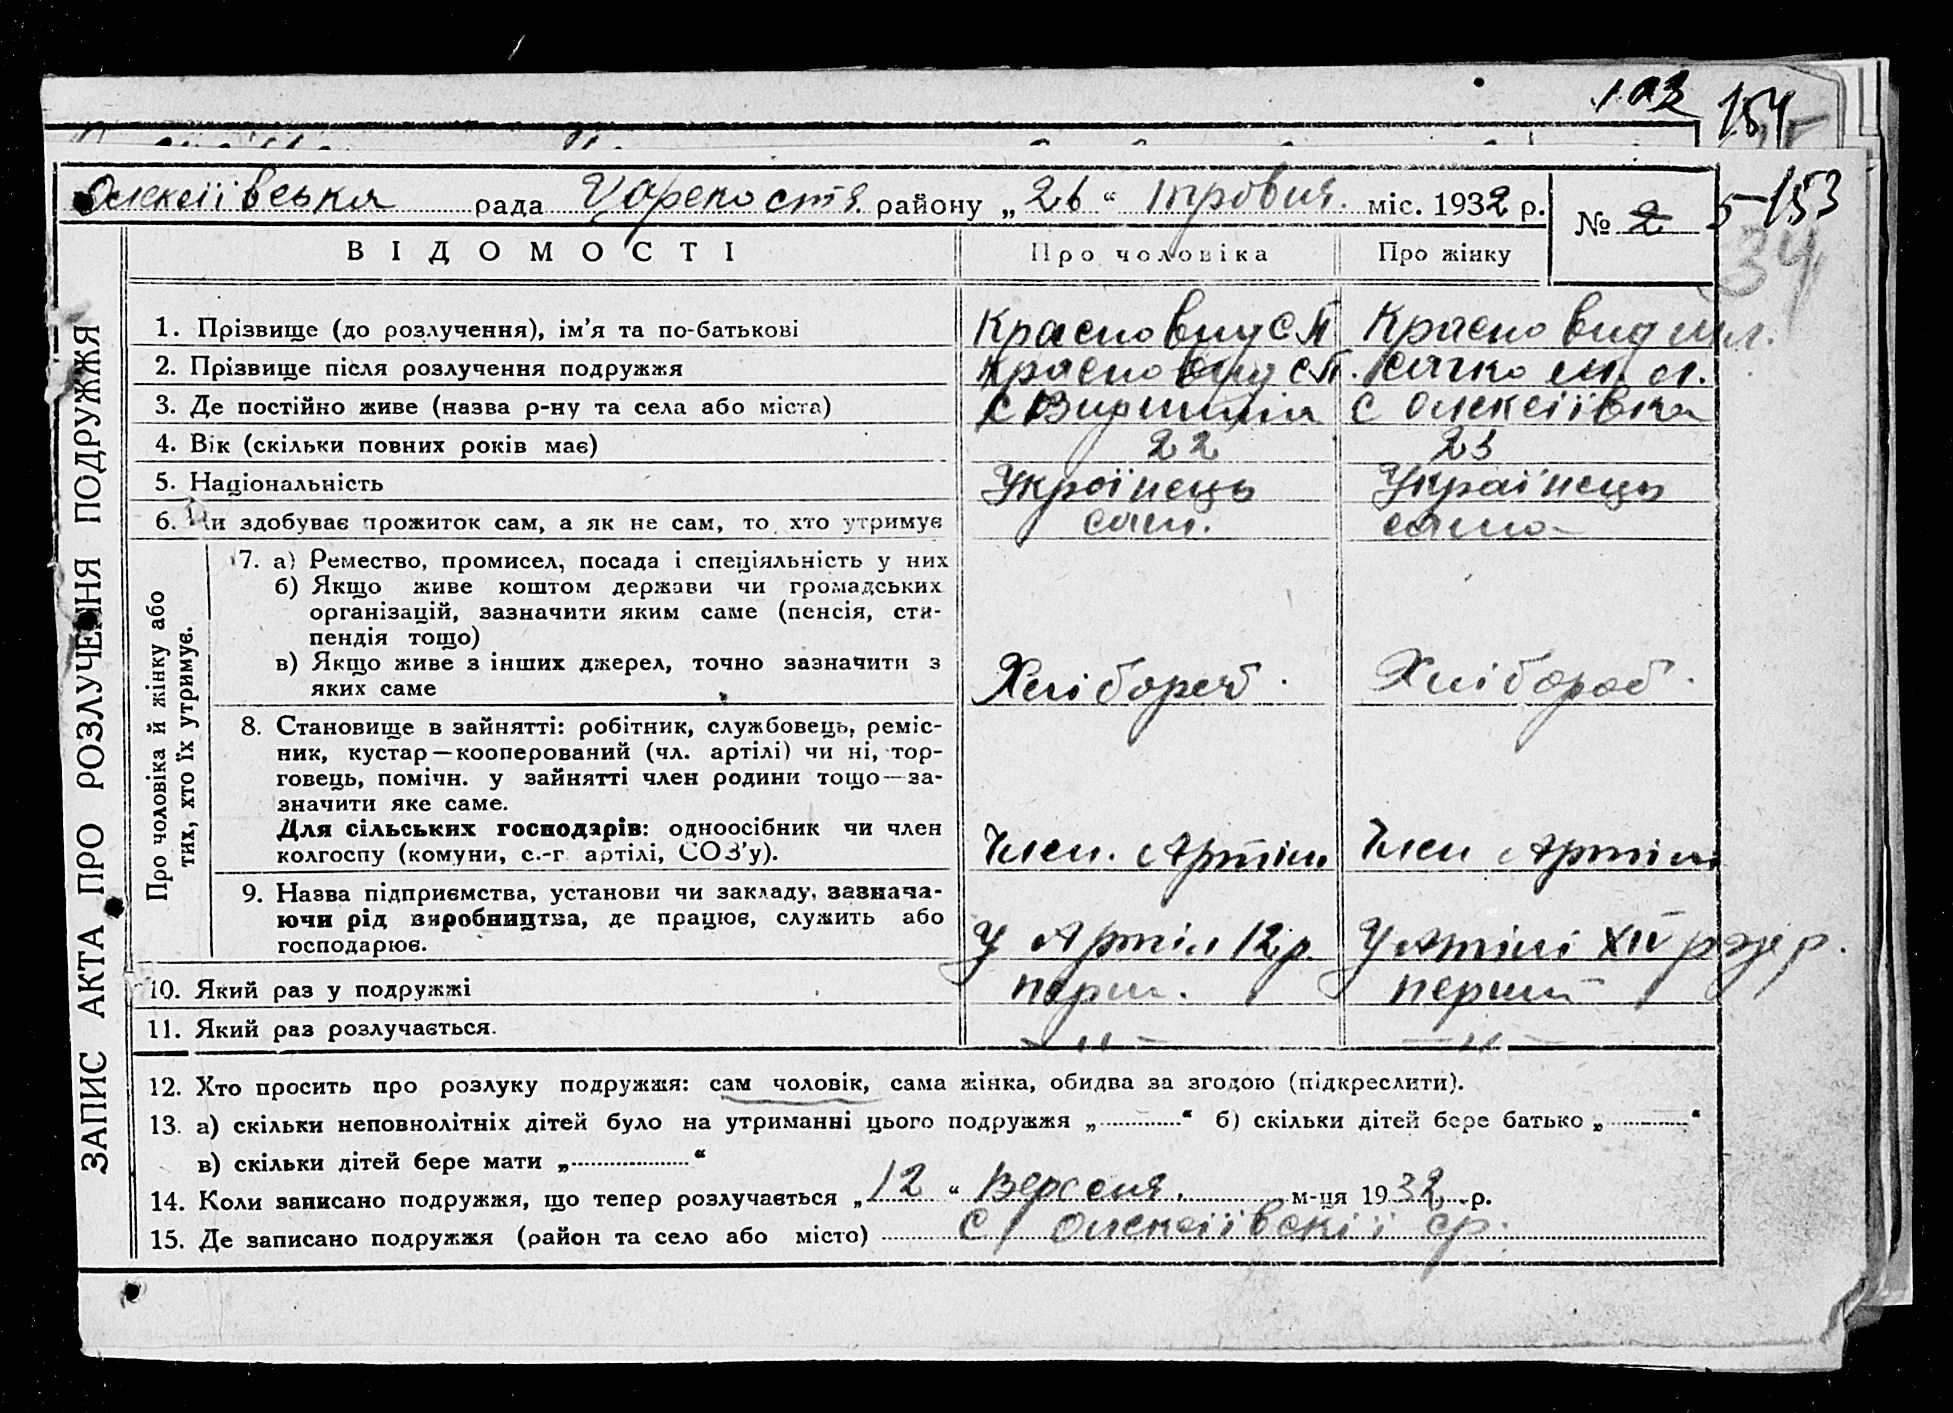 102
154
Олексіївська рада район у „26“ травня міс. 1932 р.
№ 2
5 153
34
ВІДОМОСТІ Про чоловіка Про жінку
ЗАПИС АКТА ПРО РОЗЛУЧЕННЯ ПОДРУЖЖЯ
1. Прізвище (до розлучення), ім'я та по-батькові Красновид С П Красновид М Л.
2. Прізвище після розлучення подружжя Красновид С П. Сячко М. Л.
3. Де постійно живе (назва р-ну та села або міста) С С Олексіївка
4. Вік (скільки повних років має) 22 23
5. Національність Українець Українець
6. Чи здобуває прожиток сам, а як не сам, то хто утримує сам. сама
Про чоловіка й жінку або тих, хто їх утримує.
7. а) Ремество, промисел, посада і спеціяльність у них
б) Якщо живе коштом держави чи громадських
організацій, зазначити яким саме (пенсія, сти-
пендія тощо)
в) Якщо живе з інших джерел, точно зазначити з
яких саме Хлібороб. Хлібороб.
8. Становище в зайнятті: робітник, службовець, реміс-
ник, кустар—кооперований (чл. артілі) чи ні, тор-
говець, помічн. у зайнятті член родини тощо—за-
значити яке саме.
Для сільських господарів: одноосібник чи член
колгоспу (комуни, с.-г. артілі, СОЗ'у). Член. Артіли Член Артілі
9. Назва підприємства, установи чи закладу, зазнача-
ючи рід виробництва, де працює, служить або
господарює. У Артіл 12 р. У Артілі XIV
10. Який раз у подружжі перш. перший
11. Який раз розлучається. — " — — " —
12. Хто просить про розлуку подружжя: сам чоловік, сама жінка, обидва за згодою (підкреслити).
13. а) скільки неповнолітніх дітей було на утриманні цього подружжя „.............“ б) скільки дітей бере батько „.............“
в) скільки дітей бере мати „...................“
14. Коли записано подружжя, що тепер розлучається „12“ Вересня. м-ця 1932 р.
15. Де записано подружжя (район та село або місто) С Олексіївскії ср.